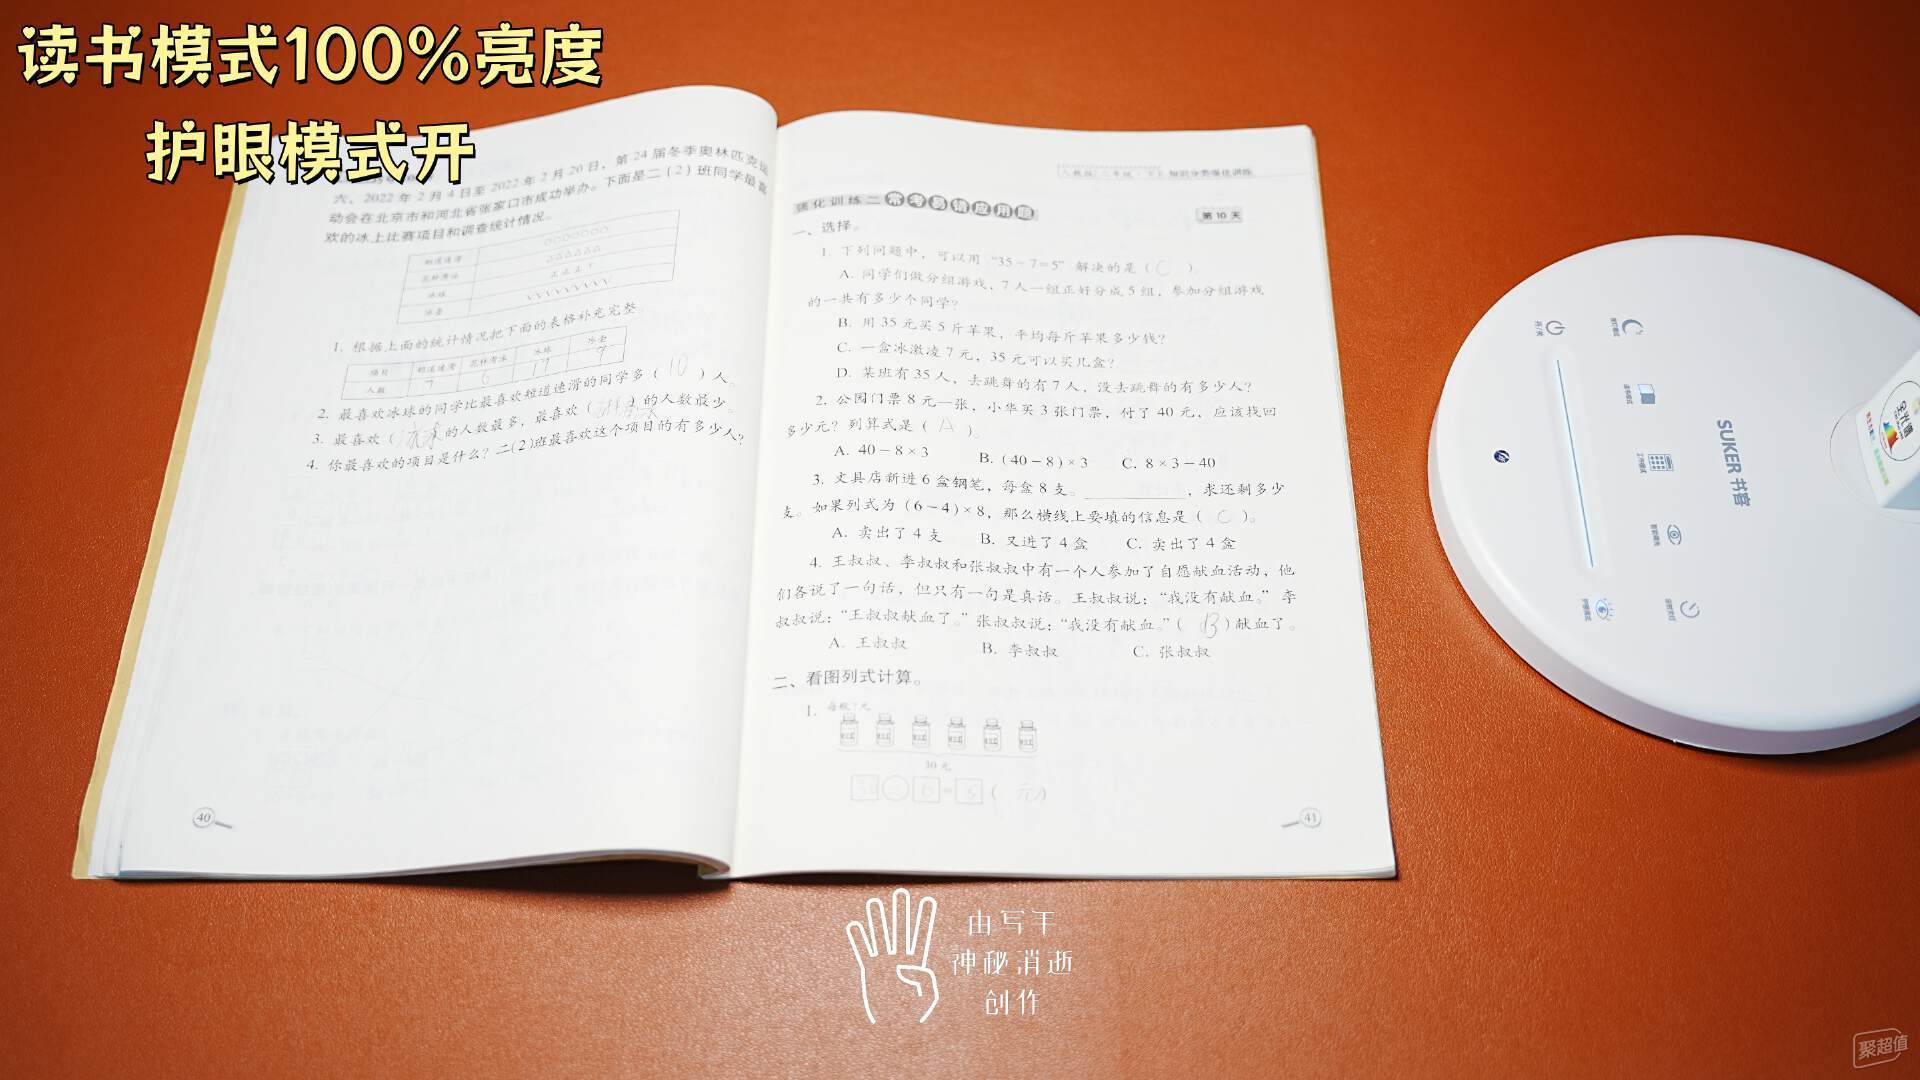 读书模式100%亮度
护眼模式开
六、2022 年 2 月 4 日至 2022 年 2 月 20 日，第 24 届冬季奥林匹克运
动会在北京市和河北省张家口市成功举办。下面是二（2）班同学最喜
欢的冰上比赛项目和调查统计情况。
短道速滑 ○○○○○○○
花样滑冰 △△△△△△
冰球 正正正
冰壶
1. 根据上面的统计情况把下面的表格补充完整
项目 短道速滑 花样滑冰 冰球 冰壶
人数 7 6 17 9
2. 最喜欢冰球的同学比最喜欢短道速滑的同学多（ 10 ）人。
3. 最喜欢（冰球）的人数最多，最喜欢（ ）的人数最少。
4. 你最喜欢的项目是什么？二(2)班最喜欢这个项目的有多少人？
40
人教版 二年级·下 知识分类强化训练
强化训练二 常考易错应用题
第 10 天
一、选择。
1. 下列问题中，可以用“35÷7=5”解决的是（ C ）。
A. 同学们做分组游戏，7 人一组正好分成 5 组，参加分组游戏
的一共有多少个同学？
B. 用 35 元买 5 斤苹果，平均每斤苹果多少钱？
C. 一盒冰激凌 7 元，35 元可以买几盒？
D. 某班有 35 人，去跳舞的有 7 人，没去跳舞的有多少人？
2. 公园门票 8 元一张，小华买 3 张门票，付了 40 元，应该找回
多少元？列算式是（ A ）。
A. 40－8×3 B. (40－8)×3 C. 8×3－40
3. 文具店新进 6 盒钢笔，每盒 8 支。________，求还剩多少
支。如果列式为 (6－4)×8，那么横线上要填的信息是（ C ）。
A. 卖出了 4 支 B. 又进了 4 盒 C. 卖出了 4 盒
4. 王叔叔、李叔叔和张叔叔中有一个人参加了自愿献血活动，他
们各说了一句话，但只有一句是真话。王叔叔说：“我没有献血。”李
叔叔说：“王叔叔献血了。”张叔叔说：“我没有献血。”（ B ）献血了。
A. 王叔叔 B. 李叔叔 C. 张叔叔
二、看图列式计算。
1. 每瓶？元
30 元
30 6 = 5 （元）
41
SUKER 书客
全光谱
由写乍
神秘消逝
创作
聚超值